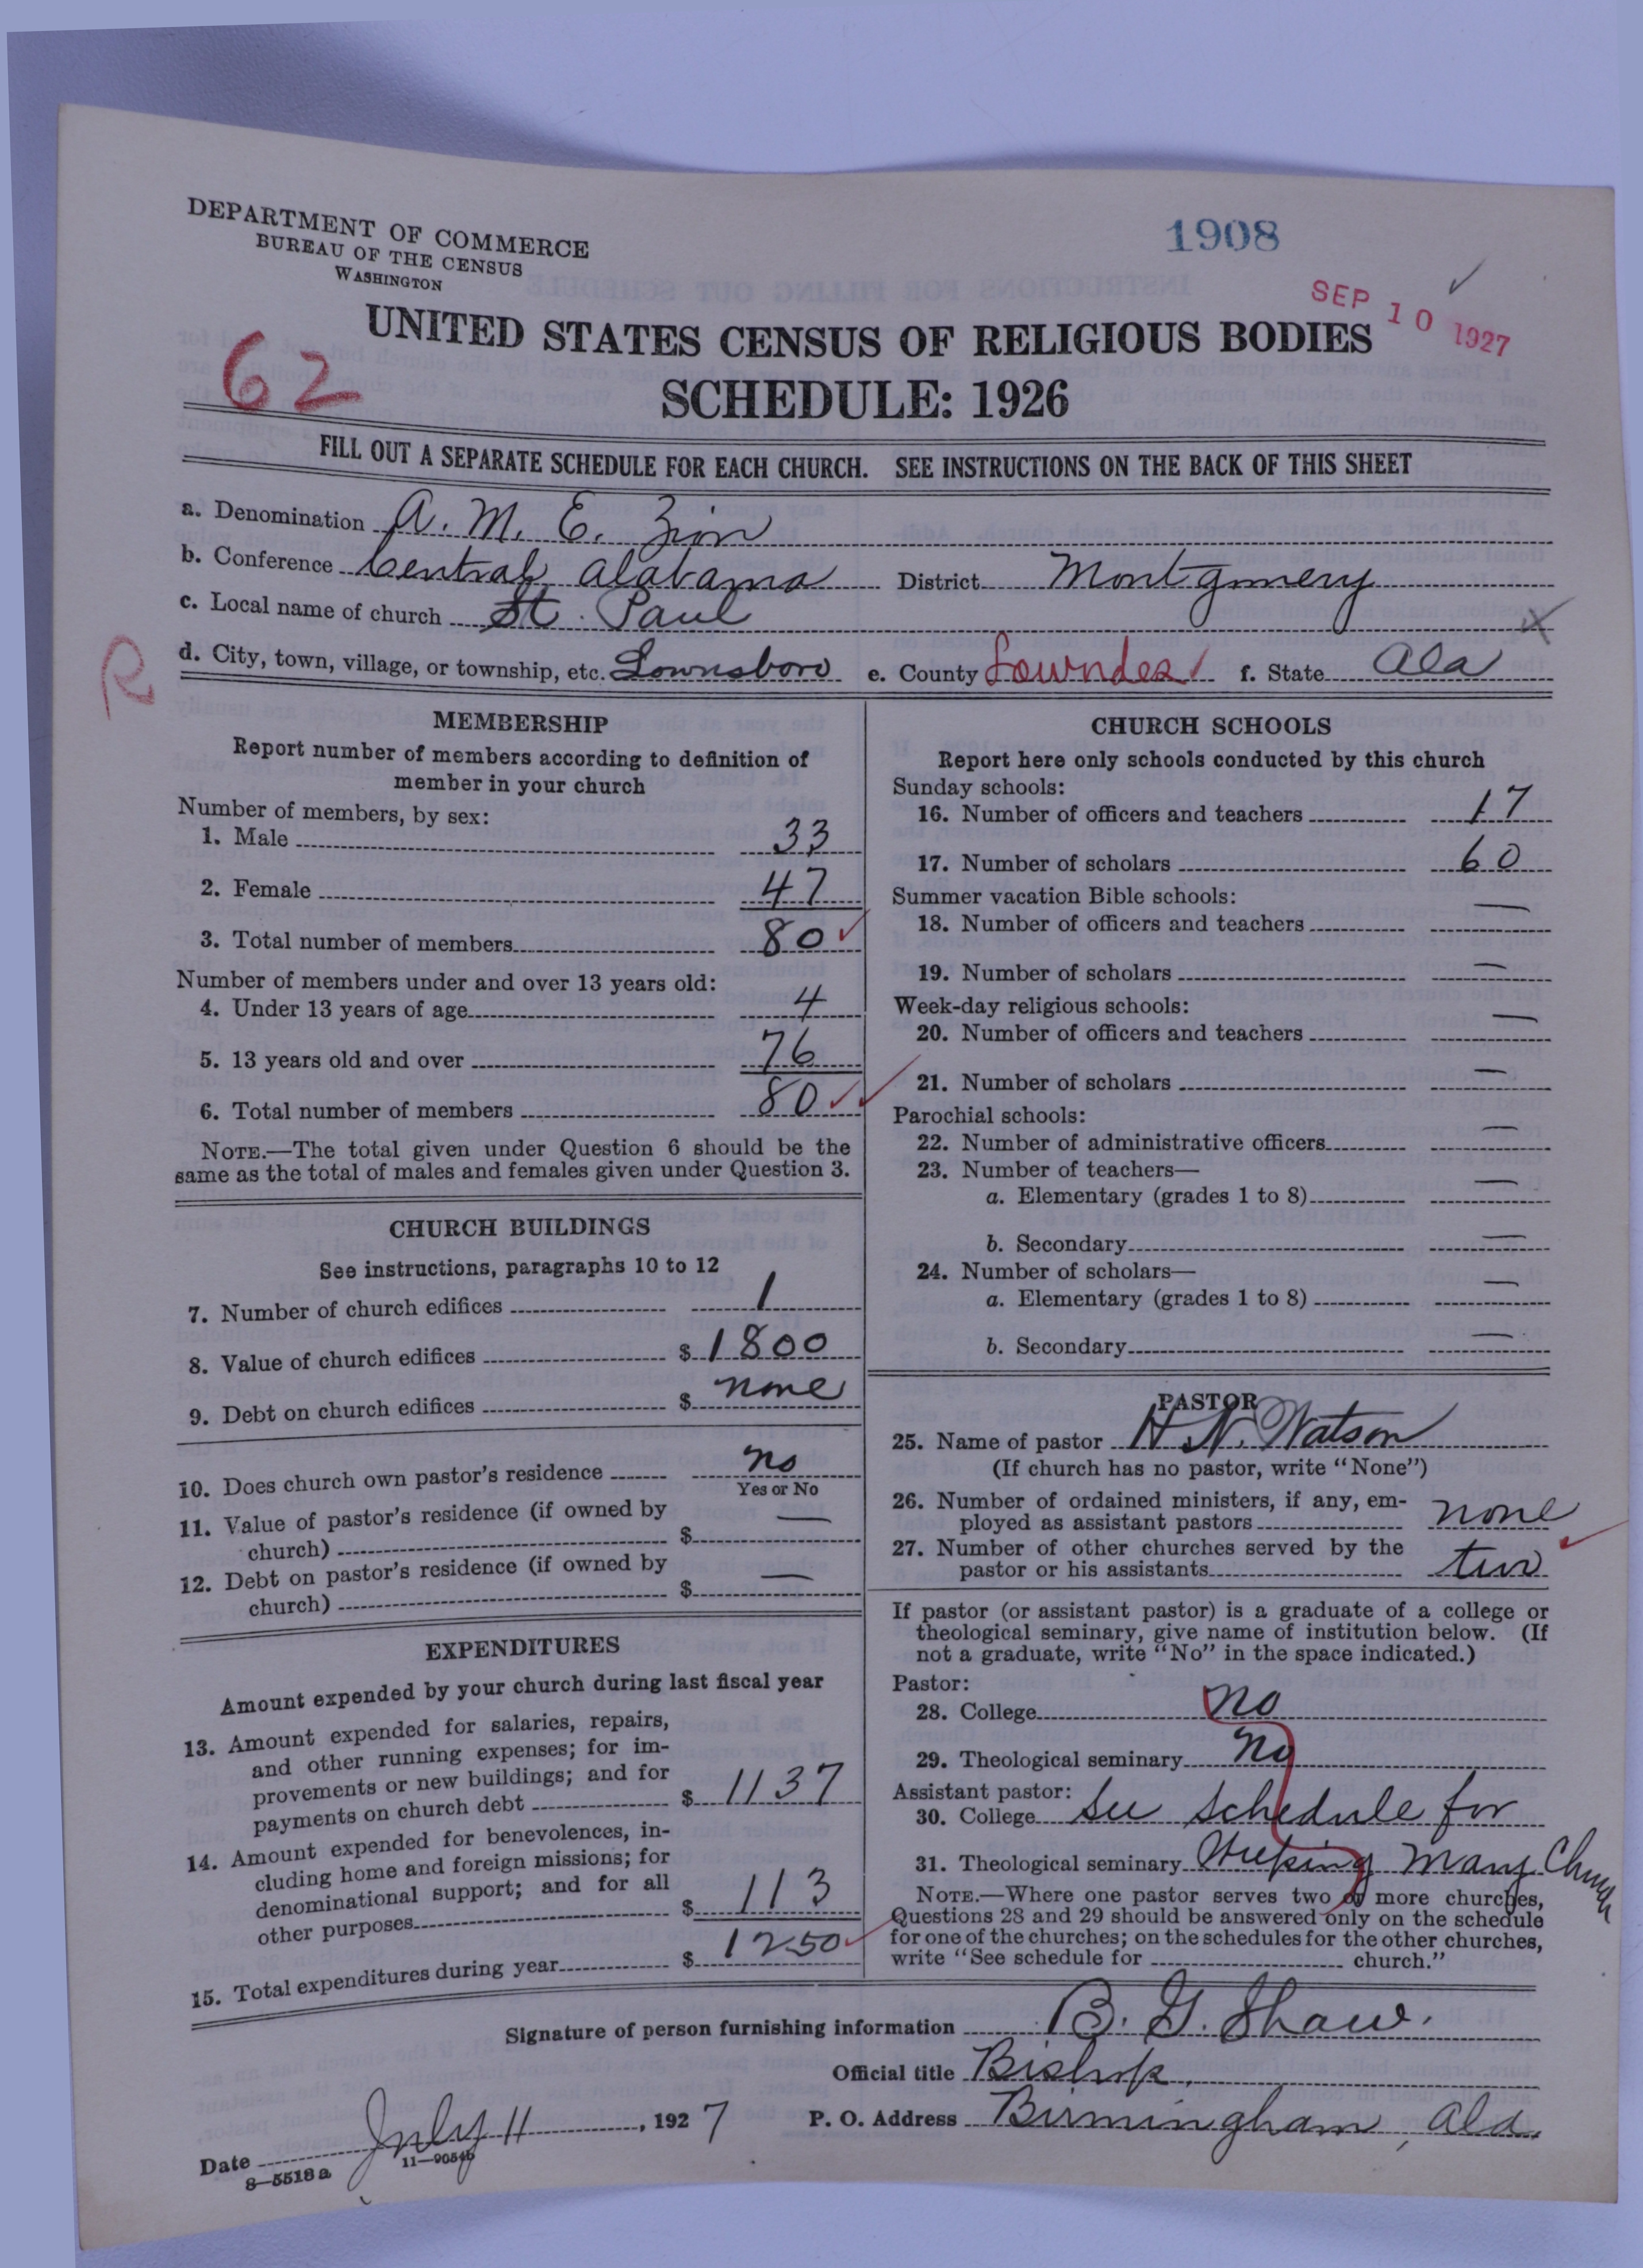 DEPARTMENT OF COMMERCE
BUREAU OF THE CENSUS
WASHINGTON
1908
SEP 10 1927
UNITED STATES CENSUS OF RELIGIOUS BODIES
62
SCHEDULE: 1926
FILL OUT A SEPARATE SCHEDULE FOR EACH CHURCH. SEE INSTRUCTIONS ON THE BACK OF THIS SHEET
a. Denomination A. M. E. Zion
b. Conference Central Alabama District Montgomery
c. Local name of church St. Paul
R
d. City, town, village, or township, etc. Lownsboro e. County Lowndes f. State Ala
MEMBERSHIP
Report number of members according to definition of
member in your church
Number of members, by sex:
1. Male 33
2. Female 47
3. Total number of members 80
Number of members under and over 13 years old:
4. Under 13 years of age 4
5. 13 years old and over 76
6. Total number of members 80
NOTE.—The total given under Question 6 should be the
same as the total of males and females given under Question 3.
CHURCH BUILDINGS
See instructions, paragraphs 10 to 12
7. Number of church edifices 1
8. Value of church edifices $ 1800
9. Debt on church edifices $ none
10. Does church own pastor's residence no
Yes or No
11. Value of pastor's residence (if owned by
church) $ —
12. Debt on pastor's residence (if owned by
church) $ —
EXPENDITURES
Amount expended by your church during last fiscal year
13. Amount expended for salaries, repairs,
and other running expenses; for im-
provements or new buildings; and for
payments on church debt $ 1137
14. Amount expended for benevolences, in-
cluding home and foreign missions; for
denominational support; and for all
other purposes $ 113
15. Total expenditures during year $ 1250
CHURCH SCHOOLS
Report here only schools conducted by this church
Sunday schools:
16. Number of officers and teachers 17
17. Number of scholars 60
Summer vacation Bible schools:
18. Number of officers and teachers —
19. Number of scholars —
Week-day religious schools:
20. Number of officers and teachers —
21. Number of scholars —
Parochial schools:
22. Number of administrative officers —
23. Number of teachers—
a. Elementary (grades 1 to 8) —
b. Secondary —
24. Number of scholars—
a. Elementary (grades 1 to 8) —
b. Secondary —
PASTOR
25. Name of pastor H. N. Watson
(If church has no pastor, write "None")
26. Number of ordained ministers, if any, em-
ployed as assistant pastors none
27. Number of other churches served by the
pastor or his assistants two
If pastor (or assistant pastor) is a graduate of a college or
theological seminary, give name of institution below. (If
not a graduate, write "No" in the space indicated.)
Pastor:
28. College no
29. Theological seminary no
Assistant pastor:
30. College See schedule for
31. Theological seminary Weeping Mary Church
NOTE.—Where one pastor serves two or more churches,
Questions 28 and 29 should be answered only on the schedule
for one of the churches; on the schedules for the other churches,
write "See schedule for church."
Signature of person furnishing information B. G. Shaw.
Official title Bishop,
Date July 11, 1927 P. O. Address Birmingham, Ala.
8—5518a 11—9054b